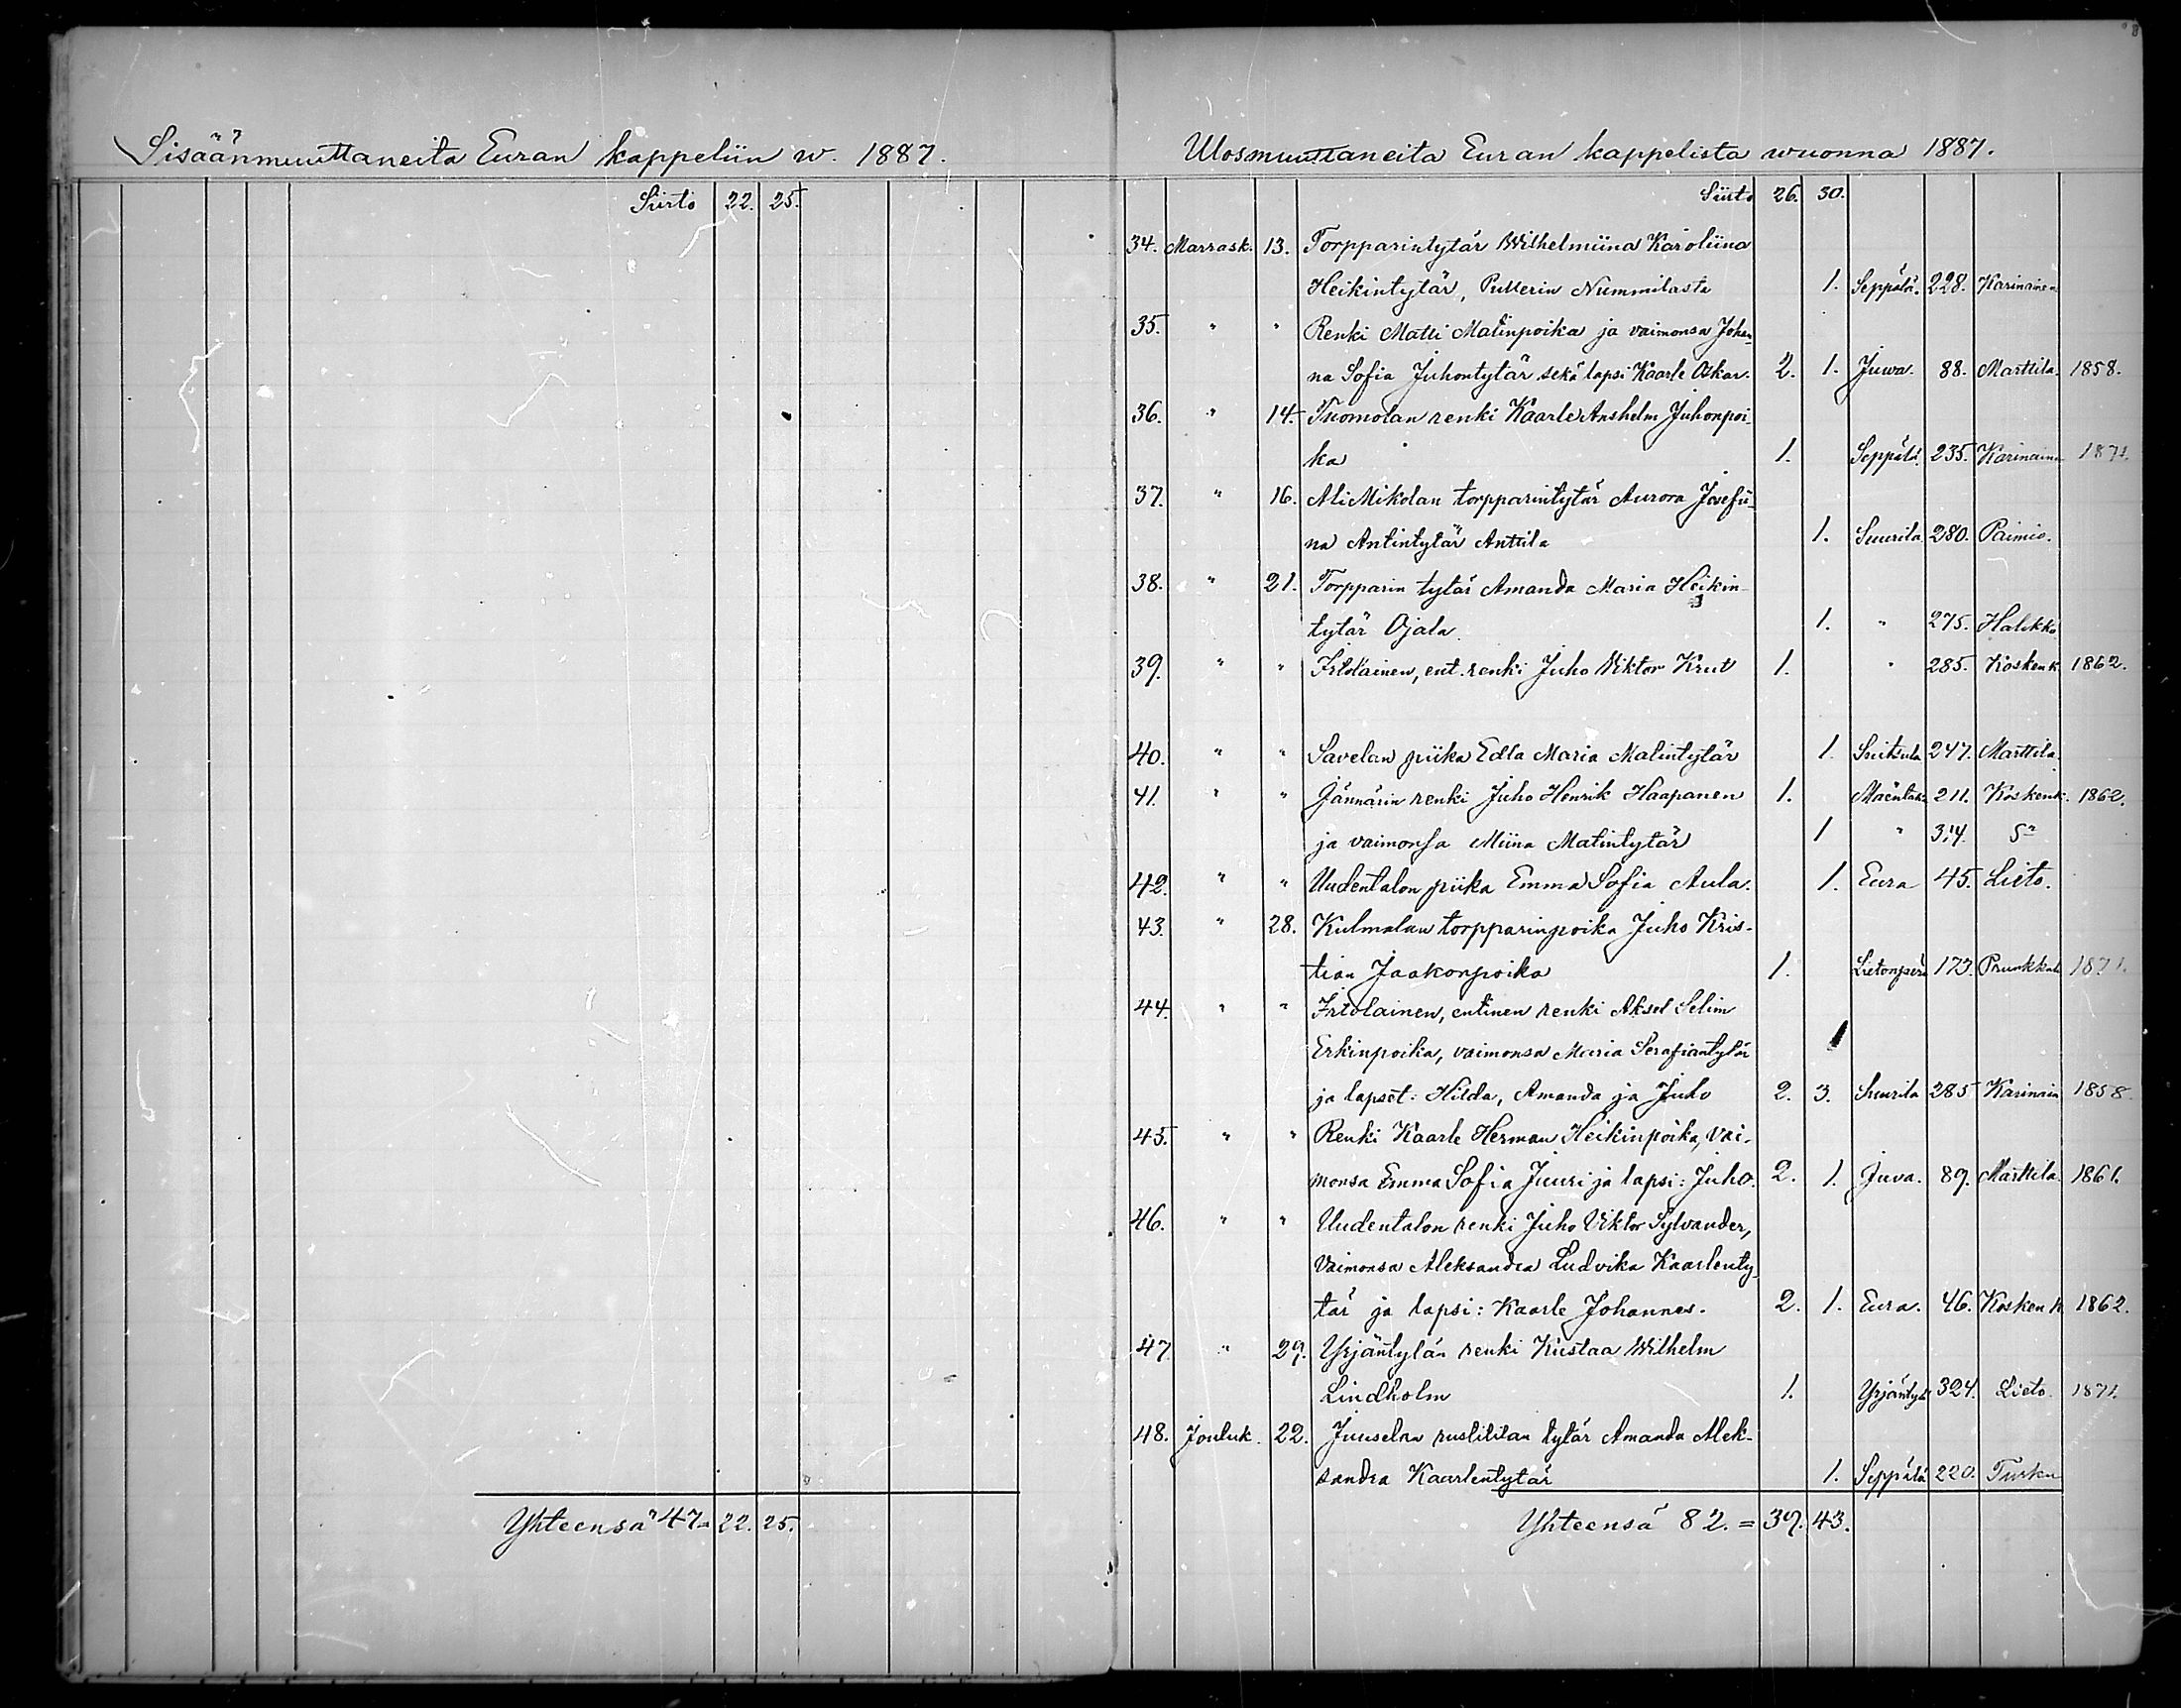 Sisäänmuuttaneita Euran kappeliin w. 1887.
Siirto 22. 25.
Yhteensä 47 = 22. 25.
Ulosmuuttaneita Euran kappelista wuonna 1887.
Siirto 26. 30.
34. Marrask. 13. Torpparintytär Wilhelmiina Karoliina
Heikintytär, Pullerin Nummilasta 1. Seppälä. 228. Karinainen
35. " " Renki Matti Matinpoika ja vaimonsa Johan-
na Sofia Juhontytär sekä lapsi Kaarle Oskar. 2. 1. Juwa. 88. Marttila. 1858.
36. " 14. Tuomolan renki Kaarle Anshelm Juhonpoi-
ka 1. Seppälä. 235. Karinainen 1871.
37. " 16. Ali Mikolan torpparintytär Aurora Josefii-
na Antintytär Anttila 1. Suurila 280. Paimio.
38. " 21. Torpparin tytär Amanda Maria Heikin-
tytär Ojala. 1. " 275. Halikko
39. " " Itsiläinen, ent. renki Juho Viktor Krut 1. " 285. Kosken k. 1862.
40. " " Savelan piika Edla Maria Matintytär 1. Suitsula 247. Marttila.
41. " " Jännärin renki Juho Henrik Haapanen 1. Mäentaka 211. Kosken k. 1862.
ja vaimonsa Miina Matintytär 1 " 314.
42. " " Uudentalon piika Emma Sofia Aula. 1. Eura 45. Lieto.
43. " 28. Kulmalan torpparinpoika Juho Kris-
tian Jaakonpoika 1. Lietonperä 173. Prunkkala 1871.
44. " " Itsiläinen, entinen renki Aksel Selim
Erkinpoika, vaimonsa Maria Serafiantytär
ja lapset: Hilda, Amanda ja Juho 2. 3. Suurila 285 Karinain 1858.
45. " " Renki Kaarle Herman Heikinpoika, vai-
monsa Emma Sofia Juuri ja lapsi: Juho. 2. 1. Juva. 89. Marttila. 1861.
46. " " Uudentalon renki Juho Viktor Sylvander,
vaimonsa Aleksandra Ludvika Kaarlenty-
tär ja lapsi: Kaarle Johannes. 2. 1. Eura. 46. Kosken k. 1862.
47 " 29. Yrjäntylän renki Kustaa Wilhelm
Lindholm 1. Yrjäntylä 324. Lieto. 1871.
48. Jouluk. 22. Juuselan rustitilan tytär Amanda Alek-
sandra Kaarlentytär 1. Seppälä 220. Turku
Yhteensä 82. = 39. 43.